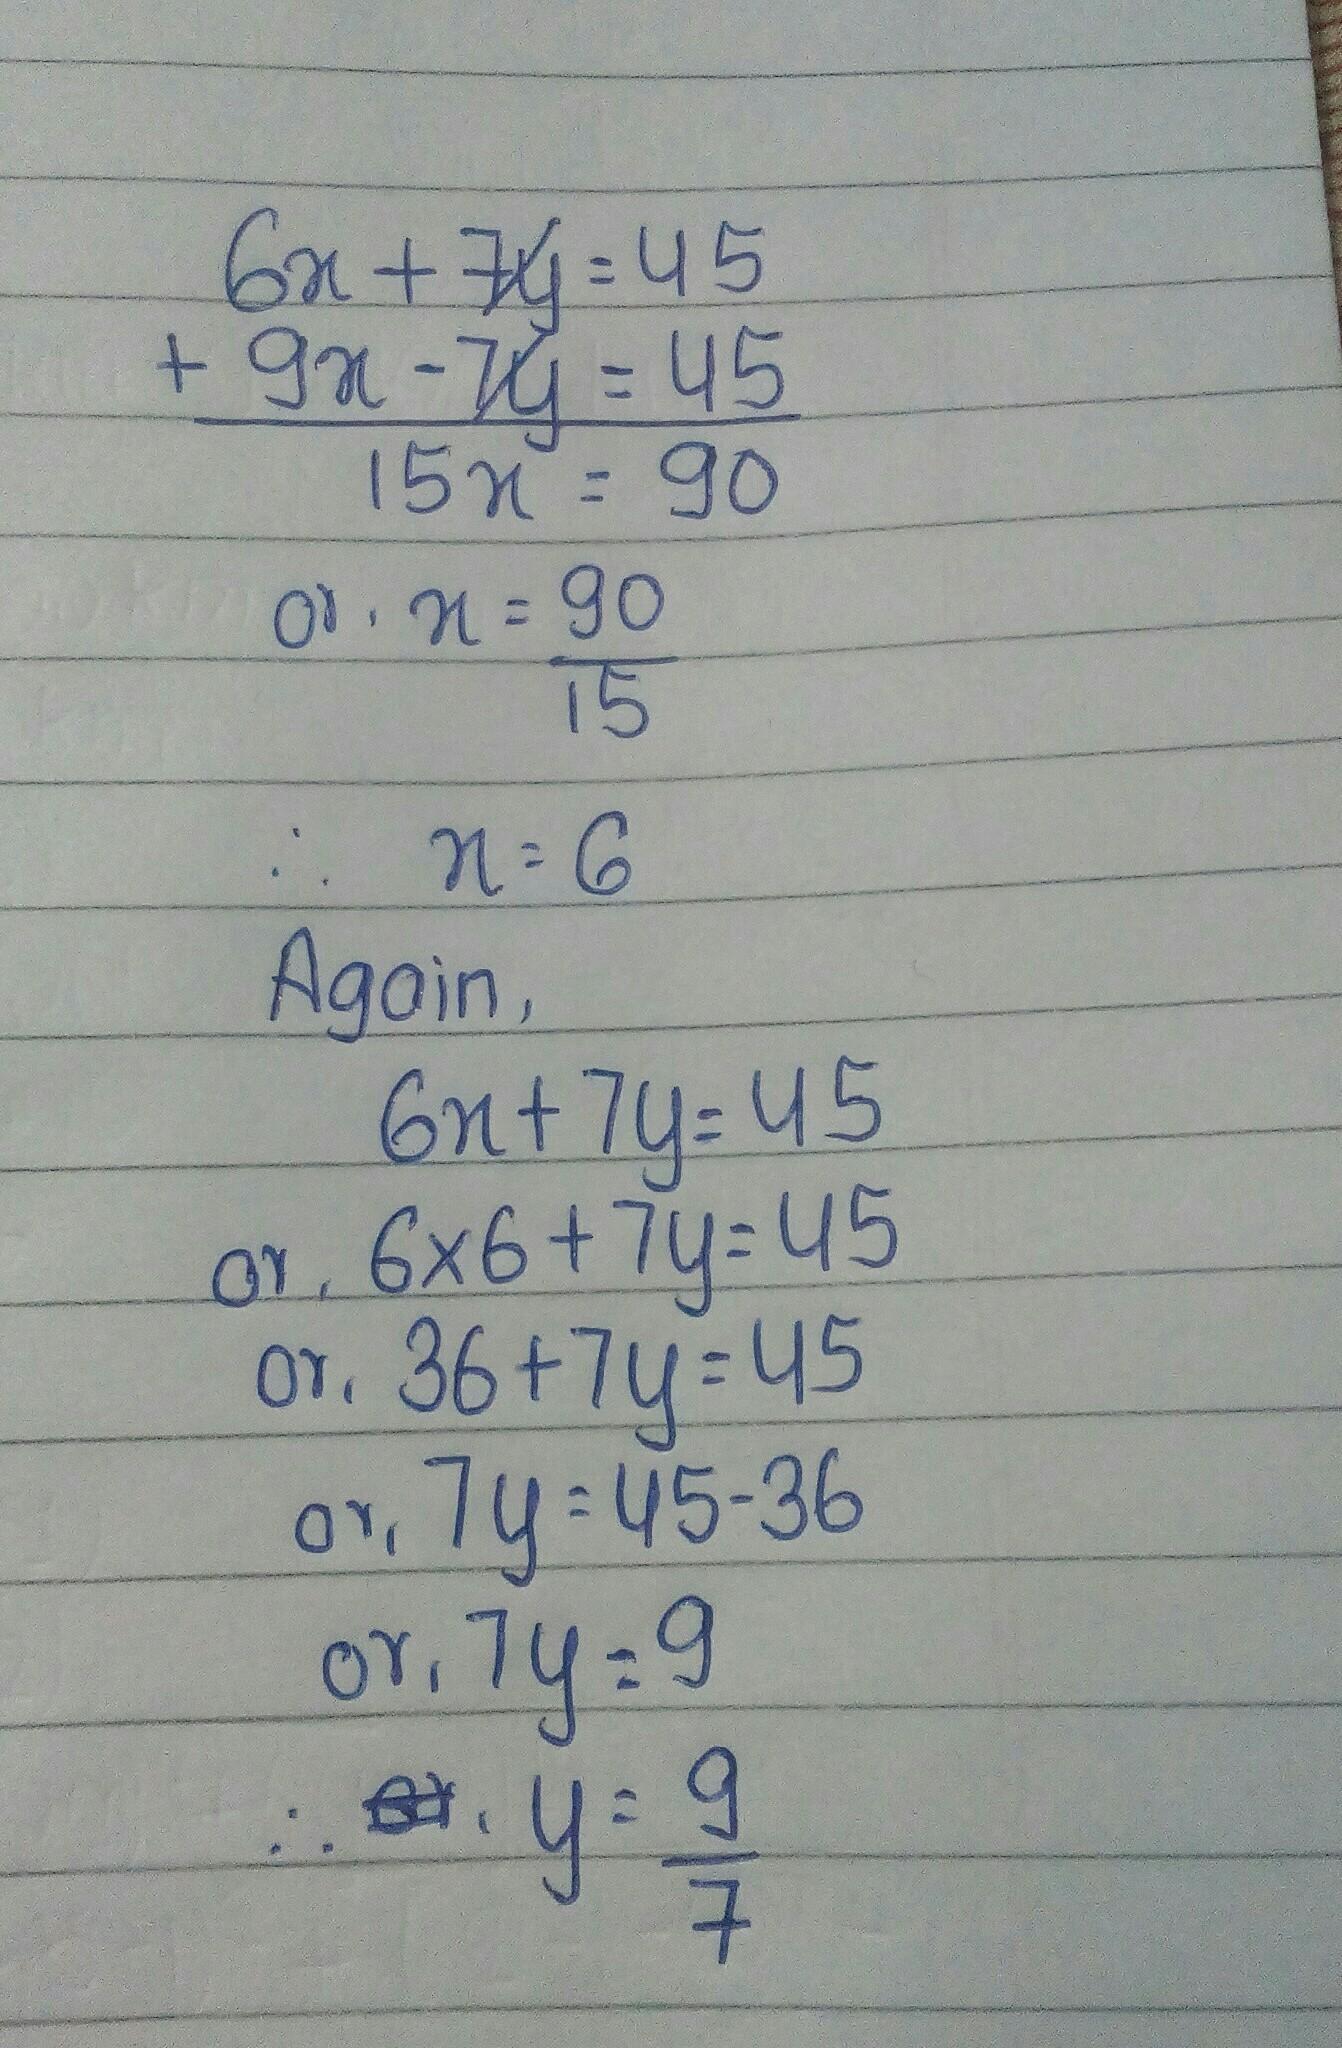 6x + 7y = 45
+ 9x - 7y = 45
15x = 90
or, x = 90
15
∴ x = 6
Again,
6x + 7y = 45
or, 6×6 + 7y = 45
or, 36 + 7y = 45
or, 7y = 45 - 36
or, 7y = 9
∴ or, y = 9
7